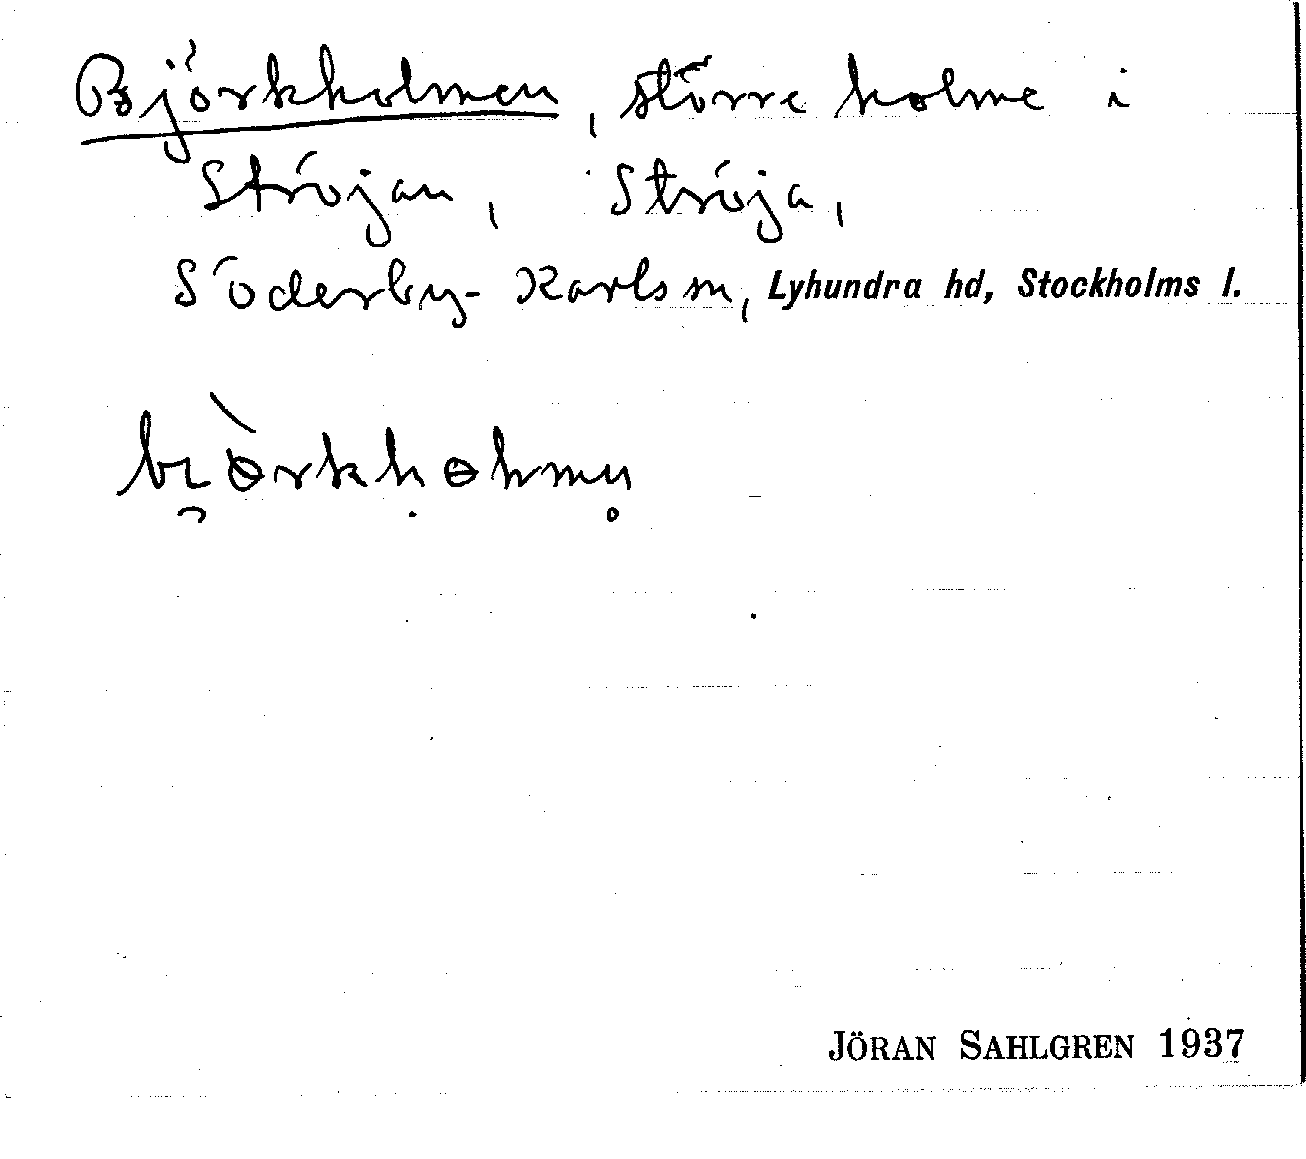 Björkholmen, större holme i
Ströjan, Ströja,
Söderby-Karls sn, Lyhundra hd, Stockholms l.
bi̯ɵ̀rkhɵlmn̥
JÖRAN SAHLGREN 1937